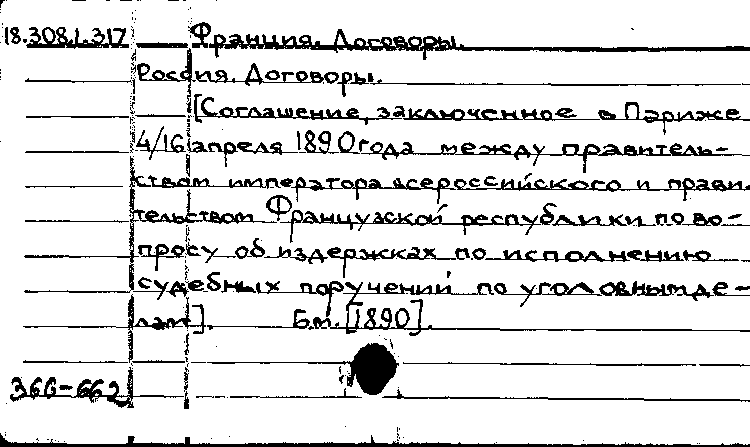 18.308.1.317 Франция. Договоры.
Россия. Договоры.
[Соглашение, заключенное в Париже
4/16 апреля 1890 года между правитель-
ством императора всероссийского и прави-
тельством Французской республики по во-
просу об издержках по исполнению
судебных поручений по уголовным де-
лам]. Б.м. [1890].
366-662